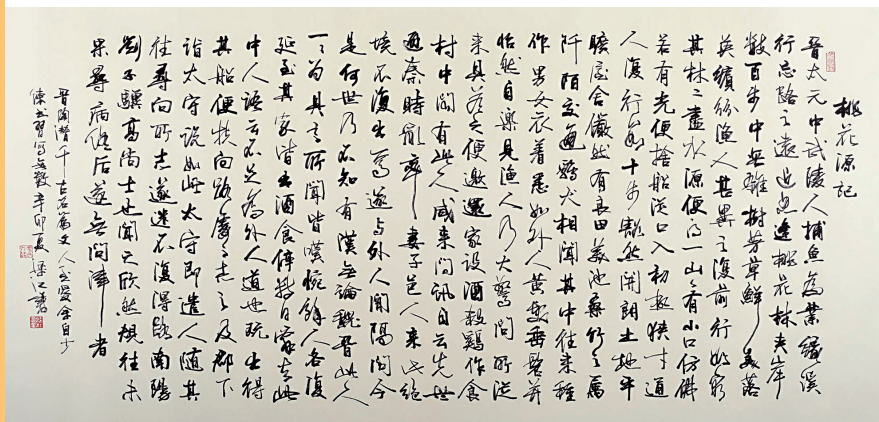 桃花源记
晋太元中武陵人捕鱼為業缘溪
行忘路之遠近忽逢桃花林夹岸
数百步中無雜樹芳草鲜美落
英缤纷渔人甚異之復前行欲窮
其林二盡水源便得一山々有小口仿佛
若有光便捨船從口入初极狭才通
人復行数十步豁然開朗土地平
曠屋舍儼然有良田美池桑竹之属
阡陌交通鷄犬相闻其中往来種
作男女衣着悉如外人黄髮垂髫并
怡然自樂見渔人乃大驚問所從
来具荅之便邀還家设酒殺鷄作食
村中闻有此人咸来问訊自云先世
避秦時亂率妻子邑人来此绝
境不復出焉遂与外人间隔问今
是何世乃不知有漢無論魏晉此人
一一为具言所闻皆嘆惋餘人各復
延至其家皆出酒食停数日辭去此
中人語云不足為外人道也既出得
其船便扶向路處々志之及郡下
詣太守说如此太守即遣人随其
往尋向所志遂迷不復得路南陽
劉子驥高尚士也闻之欣然規往未
果尋病终后遂無问津者
晋陶潜千古名篇文人至愛余自少
習写無數辛卯夏